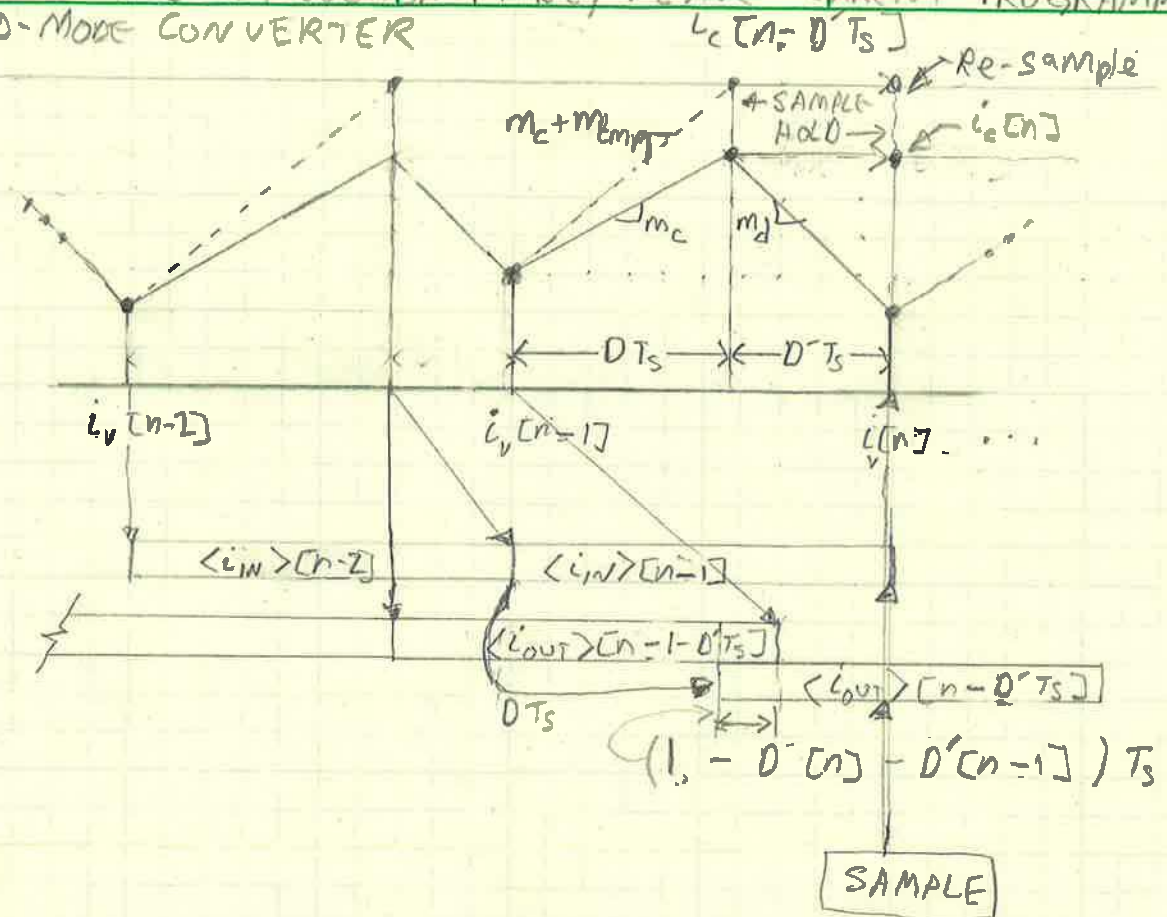 D-MODE CONVERTER
i_c [n - D'T_S]
Re-sample
SAMPLE
HOLD
i_c[n]
m_c + m_cmp
m_c
m_d
DT_S
D'T_S
i_v[n-2]
i_v[n-1]
i_v[n] . . . .
<i_IN>[n-2]
<i_IN>[n-1]
<i_OUT>[n-1-D'T_S]
<i_OUT>[n-D'T_S]
DT_S
(1 - D'[n] - D'[n-1]) T_S
SAMPLE